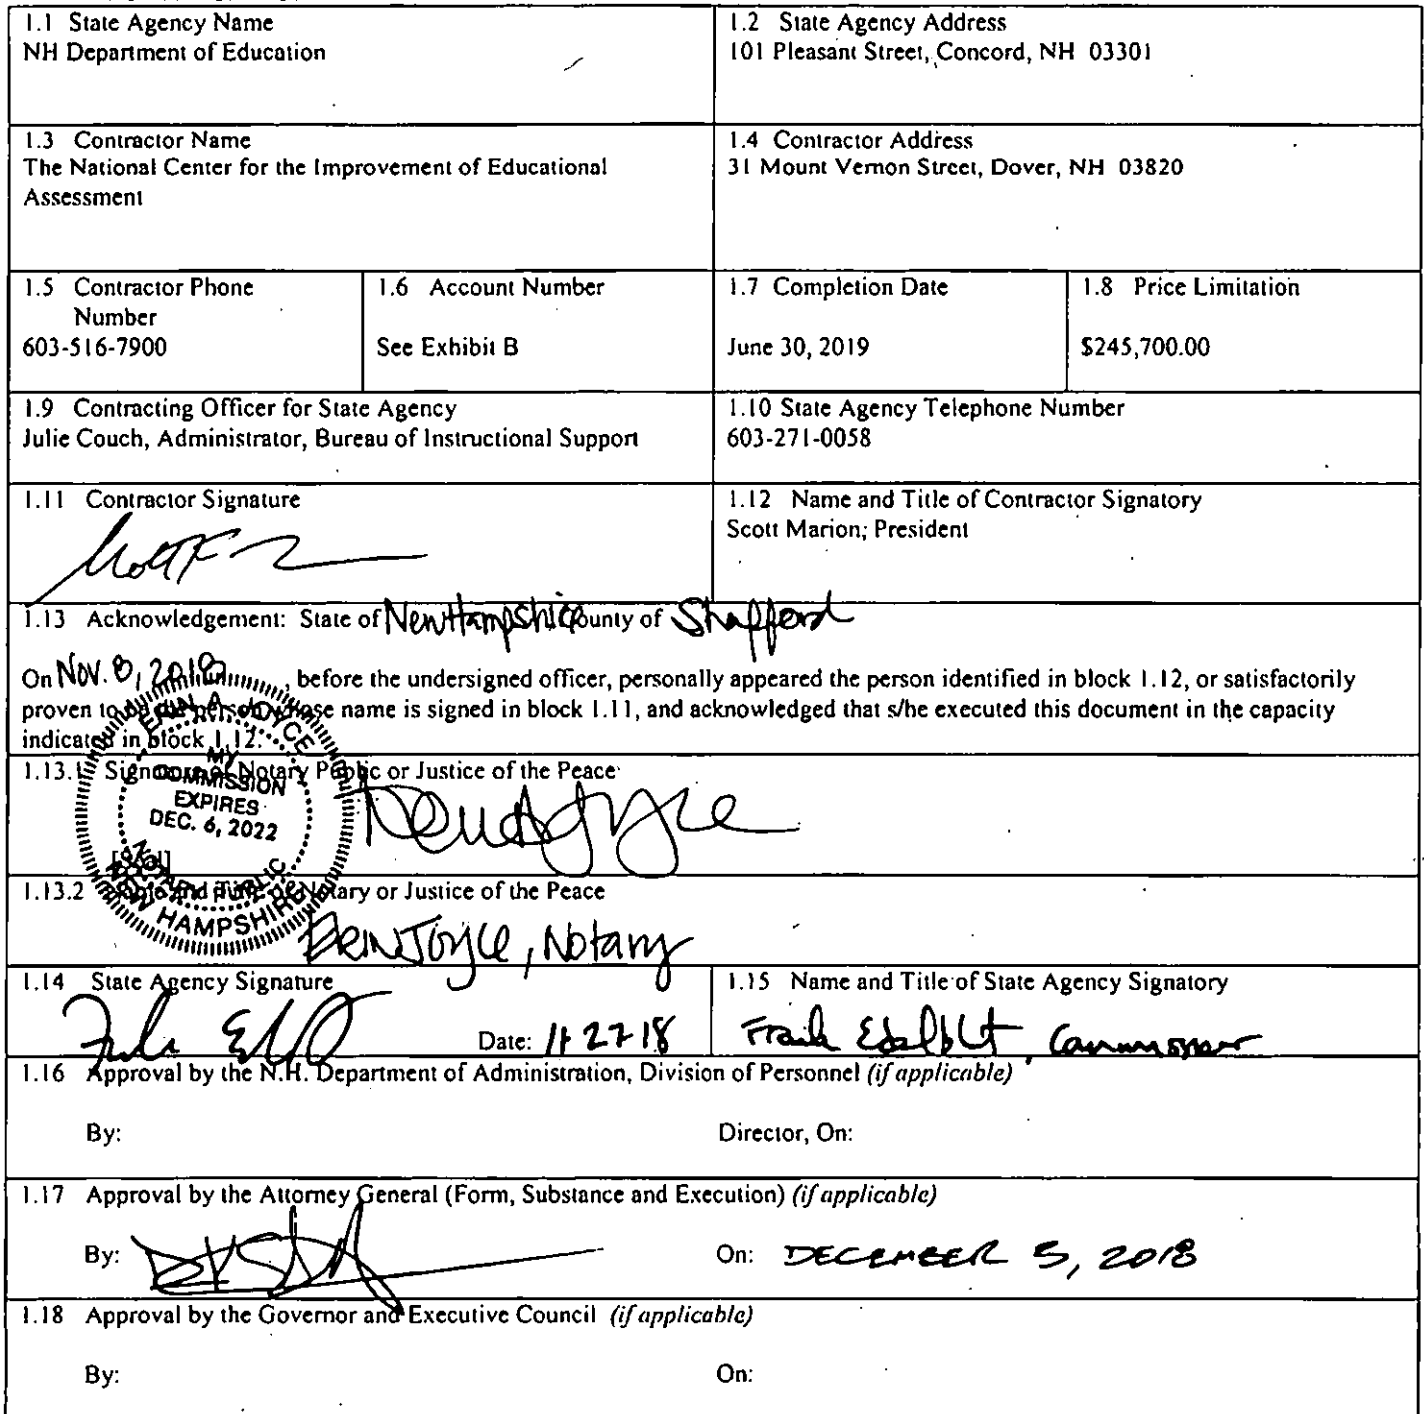 1.1 State Agency Name
NH Department of Education
1.2 State Agency Address
101 Pleasant Street, Concord, NH 03301
1.3 Contractor Name
The National Center for the Improvement of Educational
Assessment
1.4 Contractor Address
31 Mount Vernon Street, Dover, NH 03820
1.5 Contractor Phone
Number
603-516-7900
1.6 Account Number
See Exhibit B
1.7 Completion Date
June 30, 2019
1.8 Price Limitation
$245,700.00
1.9 Contracting Officer for State Agency
Julie Couch, Administrator, Bureau of Instructional Support
1.10 State Agency Telephone Number
603-271-0058
1.11 Contractor Signature
1.12 Name and Title of Contractor Signatory
Scott Marion; President
1.13 Acknowledgement: State of New Hampshire County of Strafford
On Nov. 8, 2018, before the undersigned officer, personally appeared the person identified in block 1.12, or satisfactorily
proven to be the person whose name is signed in block 1.11, and acknowledged that s/he executed this document in the capacity
indicated in block 1.12.
1.13.1 Signature of Notary Public or Justice of the Peace
[Seal]
ERIN A. JOYCE
MY
COMMISSION
EXPIRES
DEC. 6, 2022
NOTARY PUBLIC
NEW HAMPSHIRE
1.13.2 Name and Title of Notary or Justice of the Peace
Erin Joyce, Notary
1.14 State Agency Signature
Date: 11-27-18
1.15 Name and Title of State Agency Signatory
Frank Edelblut, Commissioner
1.16 Approval by the N.H. Department of Administration, Division of Personnel (if applicable)
By:
Director, On:
1.17 Approval by the Attorney General (Form, Substance and Execution) (if applicable)
By:
On: DECEMBER 5, 2018
1.18 Approval by the Governor and Executive Council (if applicable)
By:
On: